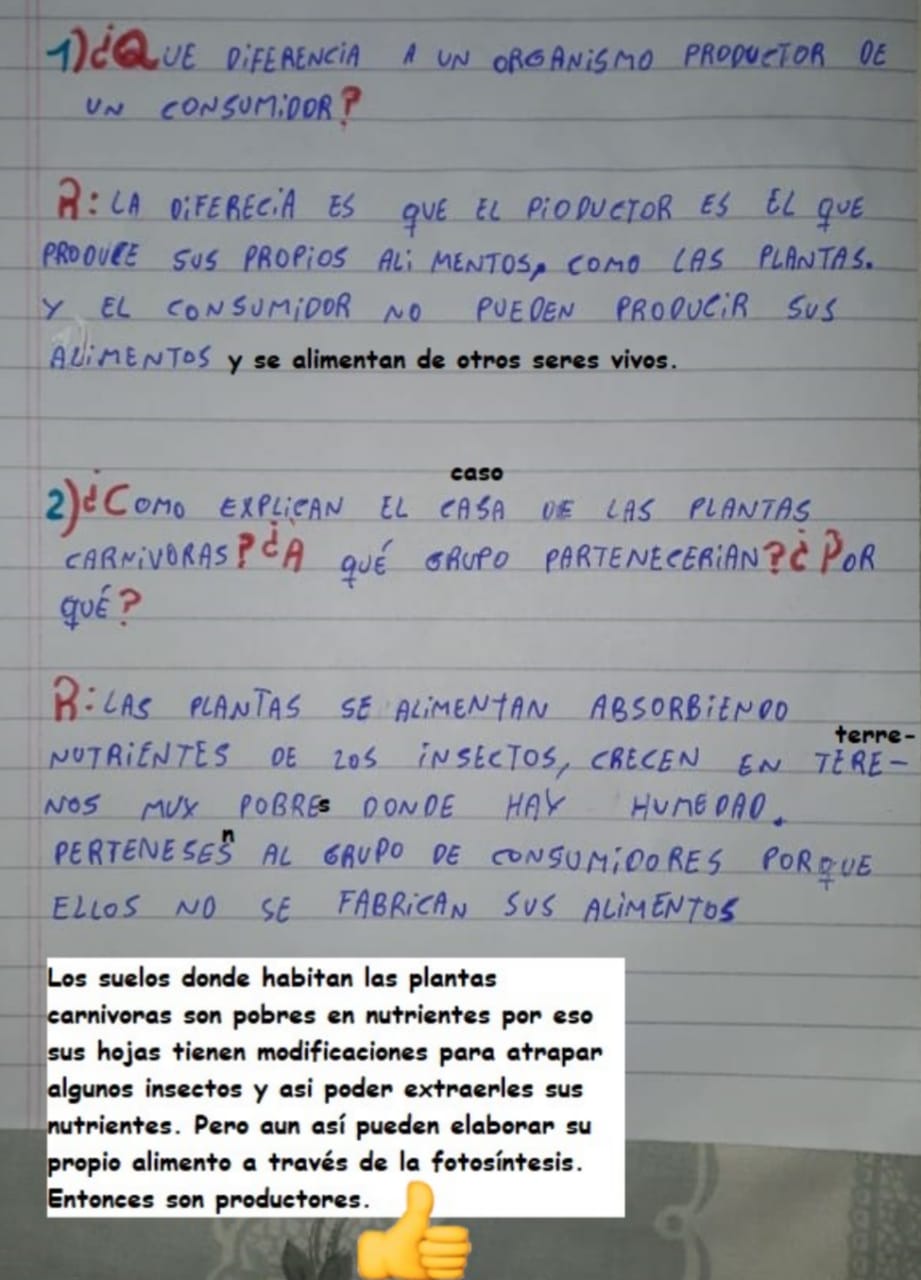 1)¿QUE DIFERENCIA A UN ORGANISMO PRODUCTOR DE
UN CONSUMIDOR?
R: LA DIFERECIA ES QUE EL PIODUCTOR ES EL QUE
PRODUCE SUS PROPIOS ALIMENTOS, COMO LAS PLANTAS.
Y EL CONSUMIDOR NO PUEDEN PRODUCIR SUS
ALIMENTOS y se alimentan de otros seres vivos.
caso
2)¿COMO EXPLICAN EL CASA DE LAS PLANTAS
CARNIVORAS? ¿A QUÉ GRUPO PARTENECERIAN? ¿POR
QUÉ?
R: LAS PLANTAS SE ALIMENTAN ABSORBIENDO
terre-
NUTRIENTES DE LOS INSECTOS, CRECEN EN TERE-
NOS MUY POBREs DONDE HAY HUMEDAD.
n
PERTENESES AL GRUPO DE CONSUMIDORES PORQUE
ELLOS NO SE FABRICAN SUS ALIMENTOS
Los suelos donde habitan las plantas
carnivoras son pobres en nutrientes por eso
sus hojas tienen modificaciones para atrapar
algunos insectos y asi poder extraerles sus
nutrientes. Pero aun así pueden elaborar su
propio alimento a través de la fotosíntesis.
Entonces son productores.